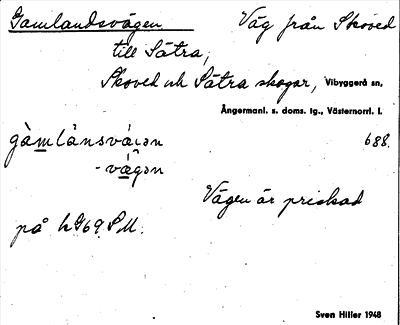 Gamlandsvägen Väg från Skoved
till Sätra,
Skoved och Sätra skogar, Vibyggerå sn,
Ångermanl. s. doms. tg., Västernorrl. l.
gàmlánsvágən 688.
- vä́gən
Vägen är prickad
på
Sven Hiller 1948